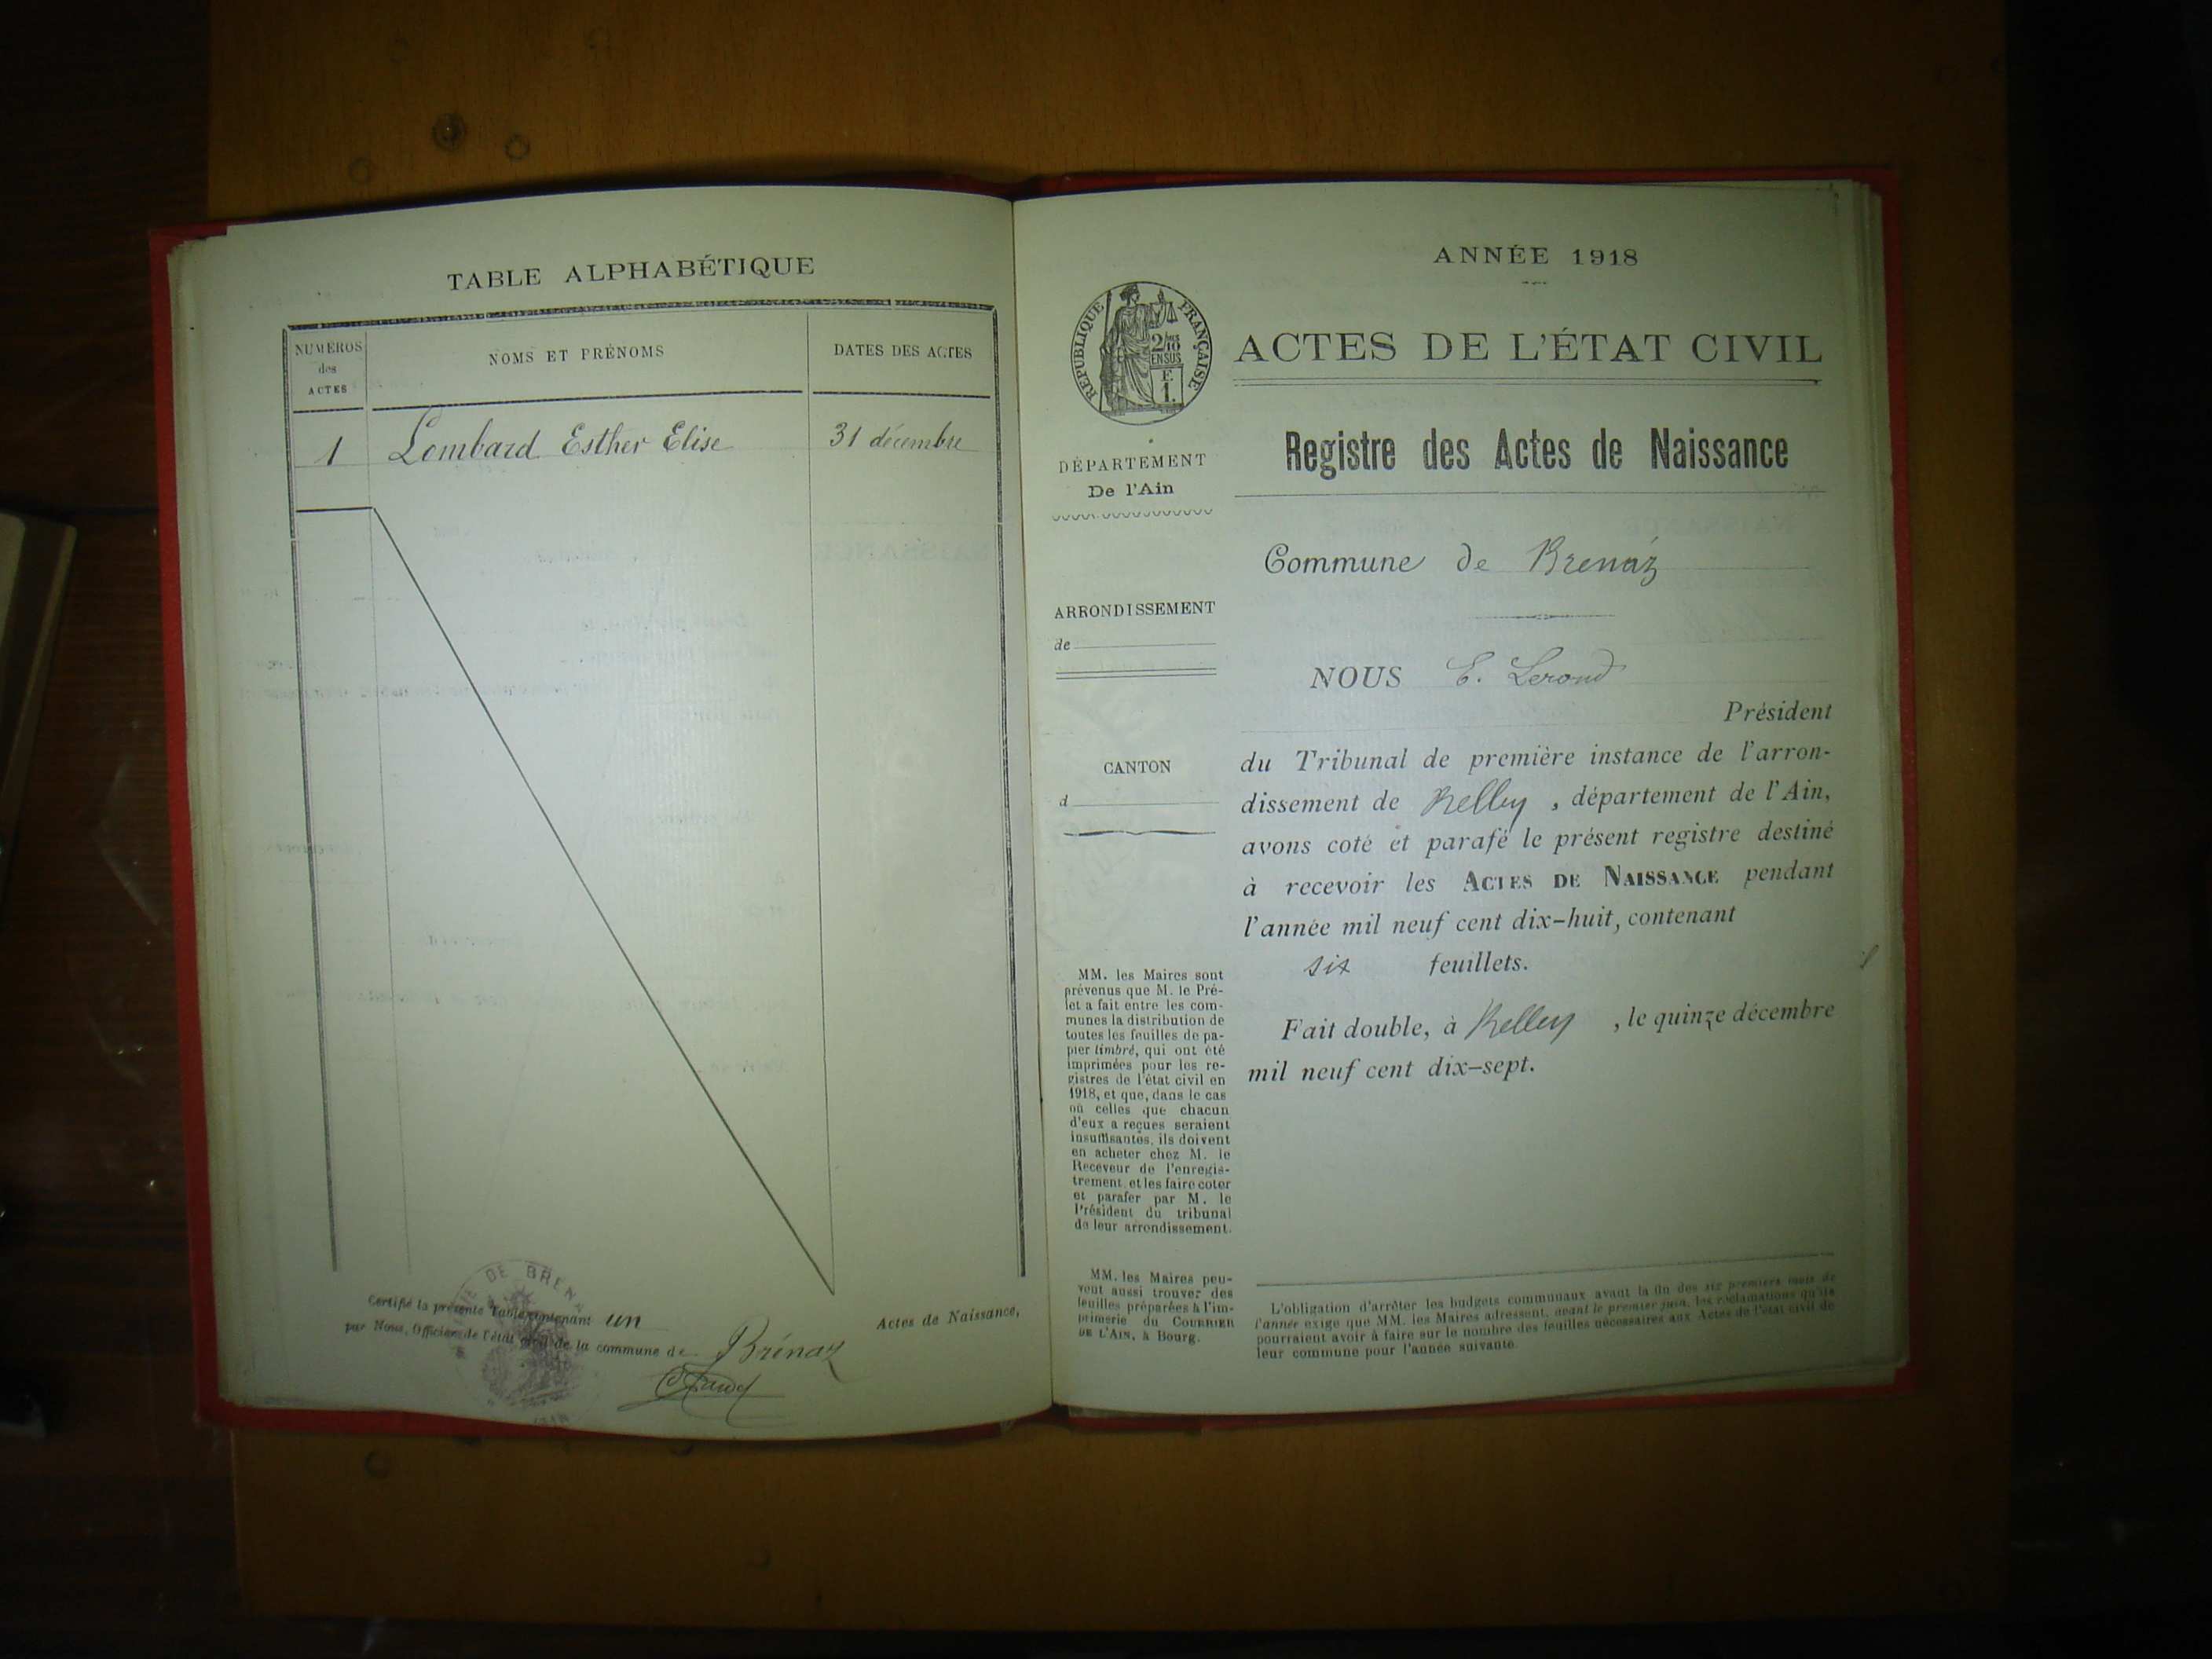 TABLE ALPHABÉTIQUE
NUMÉROS
des
ACTES
NOMS ET PRÉNOMS
DATES DES ACTES
1 Lombard Esther Elise 31 décembre
DE BREN
Certifié la présente Table contenant un Actes de Naissance,
par Nous, Officier de l'état civil de la commune de Brénaz
ANNÉE 1918
RÉPUBLIQUE FRANÇAISE
2/10
EN SUS
E.
1.
ACTES DE L'ÉTAT CIVIL
Registre des Actes de Naissance
DÉPARTEMENT
De l'Ain
Commune de Brenaz
ARRONDISSEMENT
de
NOUS E. Lerond
Président
CANTON
d
du Tribunal de première instance de l'arron-
dissement de Belley, département de l'Ain,
avons coté et parafé le présent registre destiné
à recevoir les ACTES DE NAISSANCE pendant
l'année mil neuf cent dix-huit, contenant
six feuillets.
Fait double, à Belley, le quinze décembre
mil neuf cent dix-sept.
MM. les Maires sont
prévenus que M. le Pré-
fet a fait entre les com-
munes la distribution de
toutes les feuilles de pa-
pier timbré, qui ont été
imprimées pour les re-
gistres de l'état civil en
1918, et que, dans le cas
où celles que chacun
d'eux a reçues seraient
insuffisantes, ils doivent
en acheter chez M. le
Receveur de l'enregis-
trement et les faire coter
et parafer par M. le
Président du tribunal
de leur arrondissement.
MM. les Maires peu-
vent aussi trouver des
feuilles préparées à l'im-
primerie du COURRIER
DE L'AIN, à Bourg.
L'obligation d'arrêter les budgets communaux avant la fin des six premiers mois de
l'année exige que MM. les Maires adressent, avant le premier juin, les réclamations qu'ils
pourraient avoir à faire sur le nombre des feuilles nécessaires aux Actes de l'état civil de
leur commune pour l'année suivante.